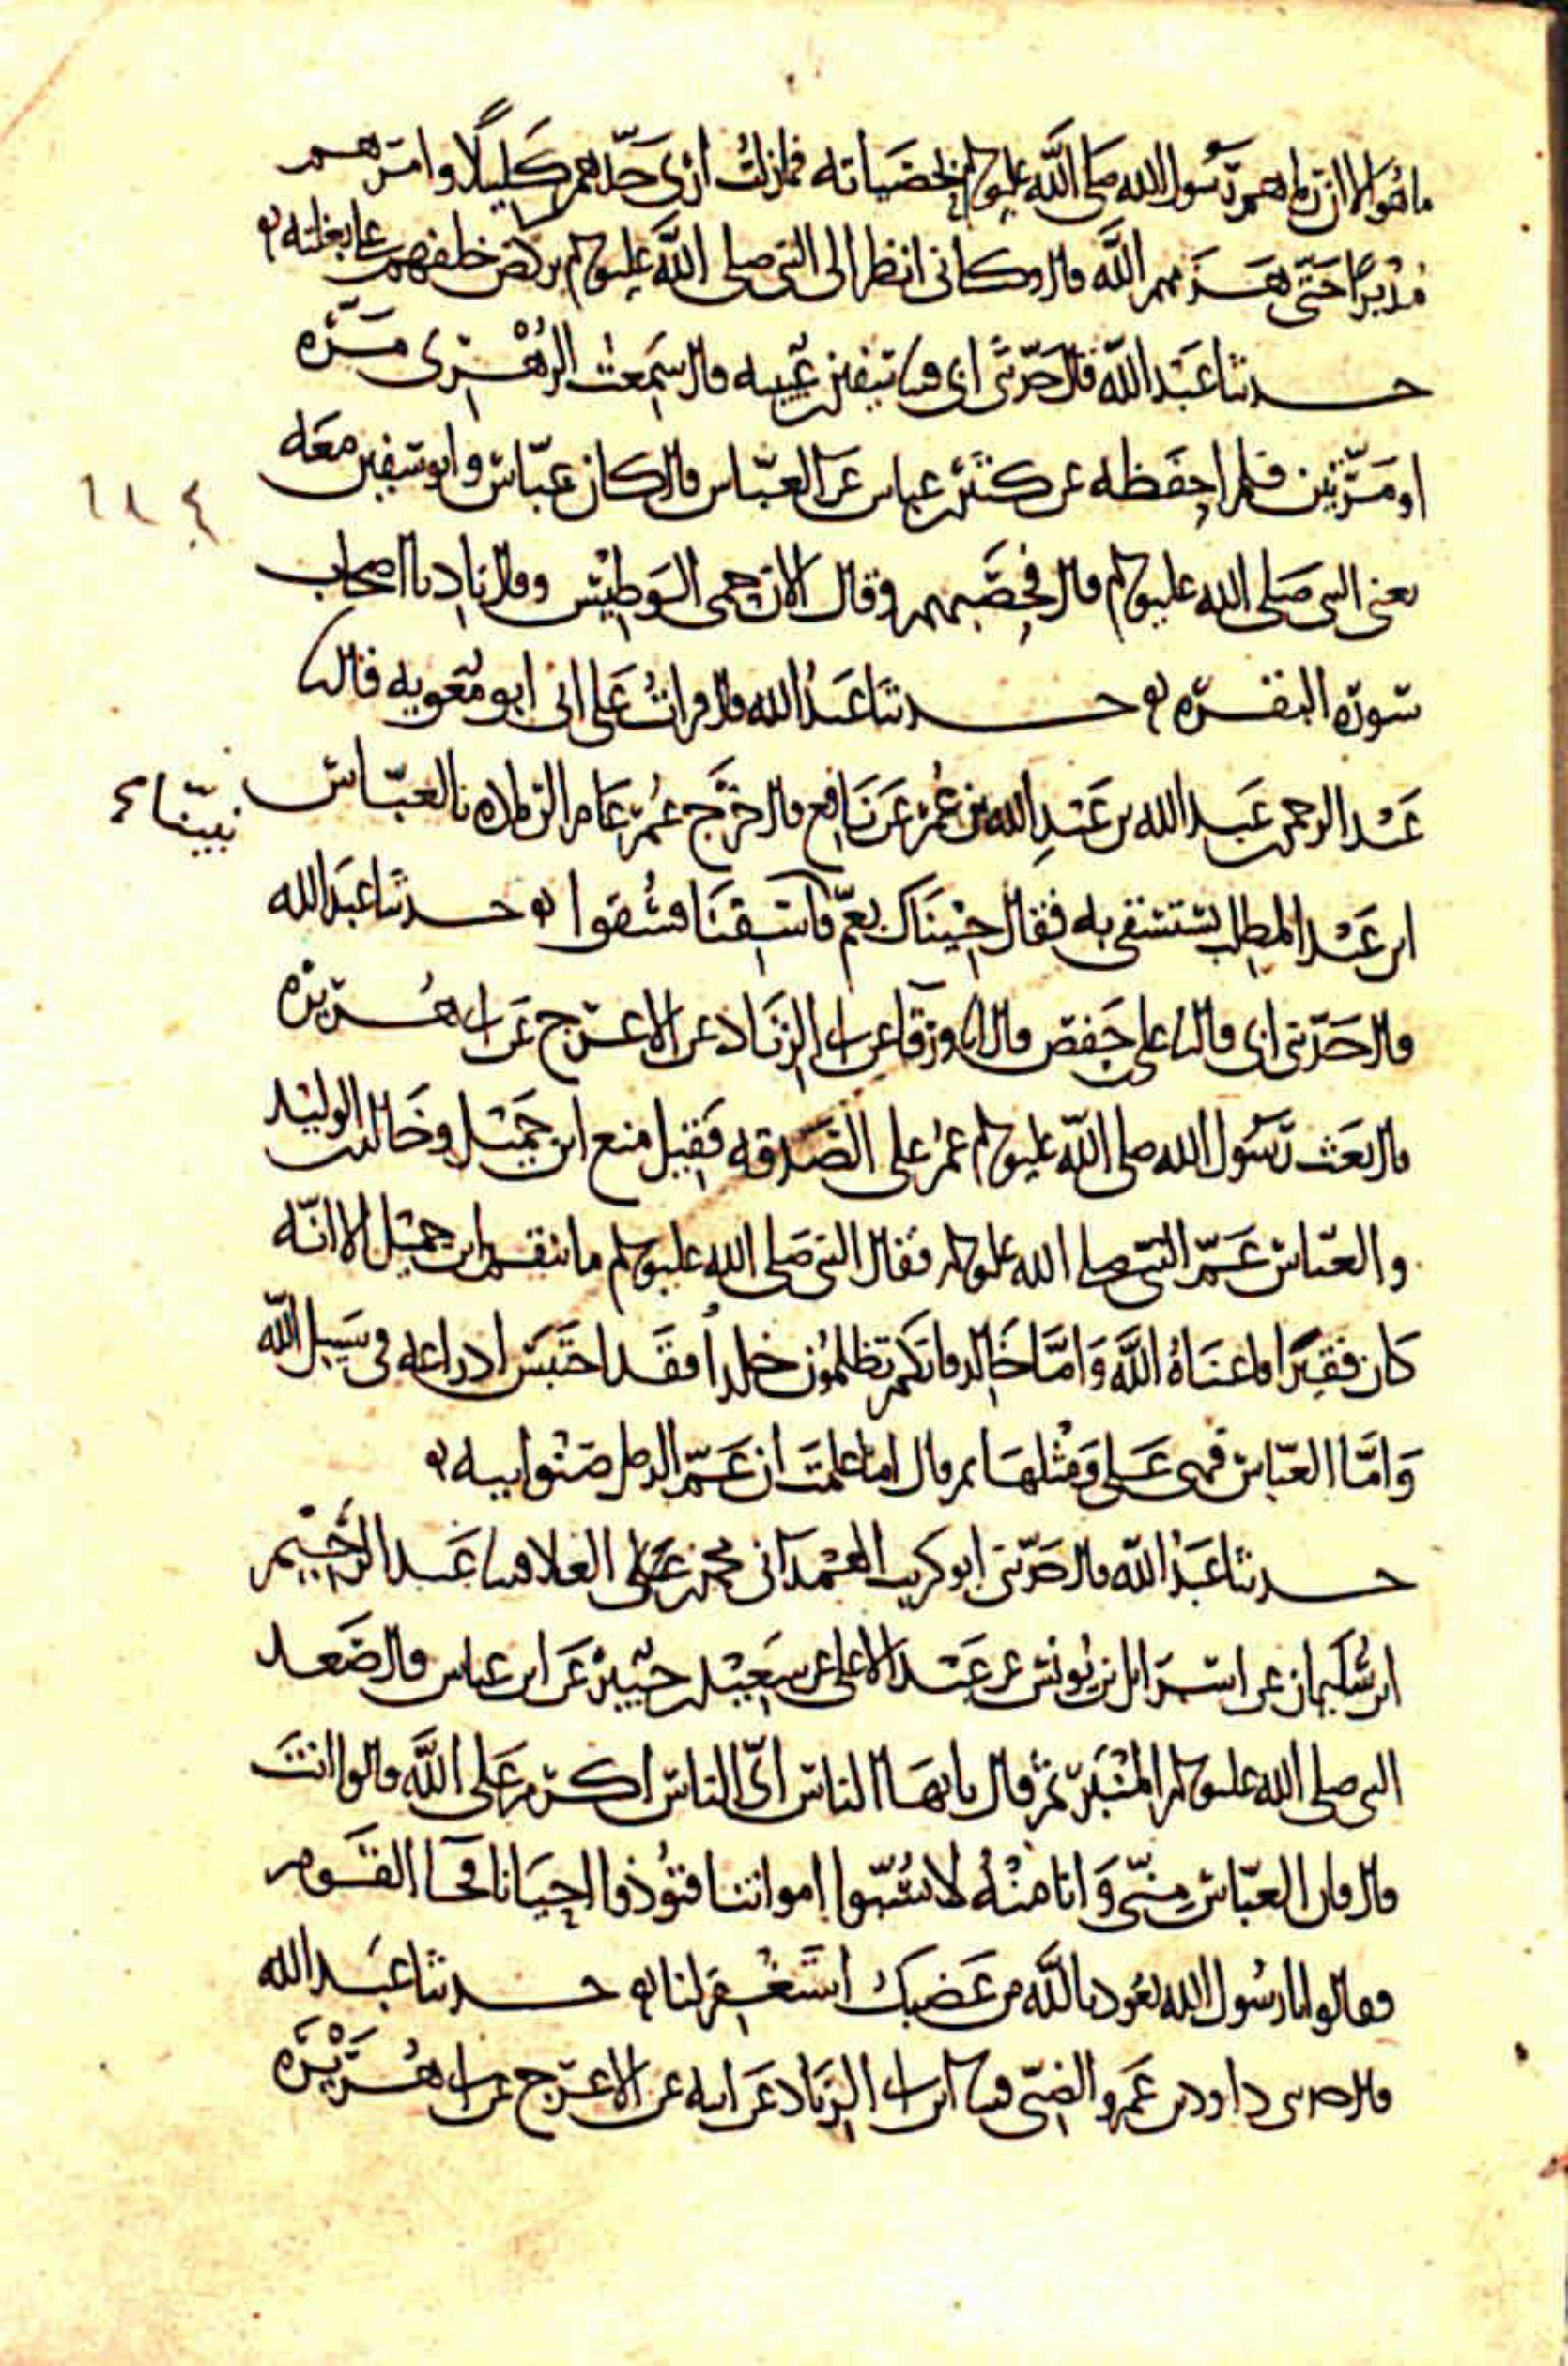 ما هو الا ان رماهم رسول الله صلى الله عليه وسلم بحصياته فما زلت ارى حدّهم كليلًا وامرهم
مدبرًا حتى هزمهم الله قال وكاني انظر الى النبي صلى الله عليه وسلم يركض خلفهم على بغلته
حدثنا عبد الله قال حدثني ابي قثنا سفين بن عيينه قال سمعت الزهري مرّه
او مرّتين فلم احفظه عن كثير بن عباس عن العباس قال كان عباس وابو سفين معه
يعني النبي صلى الله عليه وسلم قال فحصّبهم وقال الان حمي الوطيس وقال ناد يا اصحاب
سورة البقره حدثنا عبد الله قال قرات على ابي ابو معويه قال نا
عبد الرحمن بن عبد الله بن عبد الله بن عمر عن نافع قال خرج عمر عام الرماده بالعباس
ابن عبد المطلب يستسقي به فقال جيناك بعمّ نبينا فاسقنا فسقوا حدثنا عبد الله
قال حدثني ابي قال نا علي بن حفص قال انا ورقا عن ابي الزناد عن الاعرج عن ابي هريره
قال بعث رسول الله صلى الله عليه وسلم عمر على الصدقه فقيل منع ابن جميل وخالد بن الوليد
والعباس عمّ النبي صلى الله عليه وسلم فقال النبي صلى الله عليه وسلم ما ينقم ابن جميل الا انّه
كان فقيرًا فاغناه الله وامّا خالد فانكم تظلمون خلدًا فقد احتبس ادراعه في سبيل الله
وامّا العباس فهي علي ومثلها ثم قال اما علمت ان عمّ الرجل صنو ابيه
حدثنا عبد الله قال حدثني ابو كريب الهمداني محمد بن العلا قثنا عبد الرحيم
ابن سليمان عن اسرائل بن يونس عن عبد الاعلى عن سعيد بن جبير عن ابن عباس قال صعد
النبي صلى الله عليه وسلم المنبر ثم قال يا يها الناس ايّ الناس اكرم على الله قالوا انت
قال فان العباس منّي وانا منه لا تسبّوا امواتنا فتوذوا احيانا فجا القوم
فقالوا يا رسول الله نعوذ بالله من غضبك استغفر لنا حدثنا عبد الله
قال حدثني داود بن عمرو الضبّي قثنا ابن ابي الزناد عن ابيه عن الاعرج عن ابي هريره
نبينا